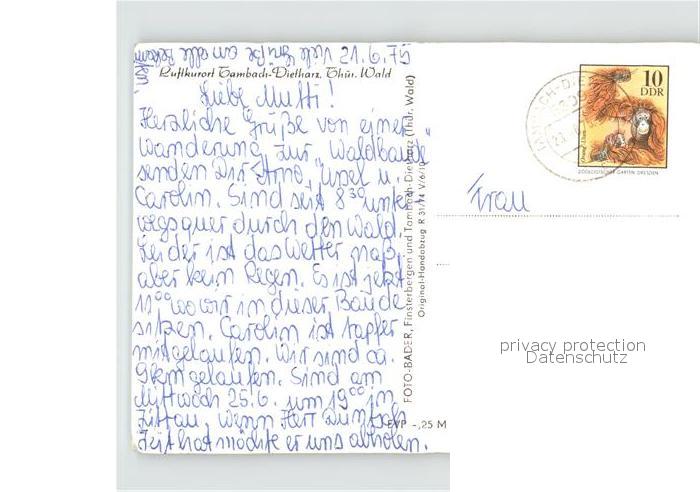 21.6.75
viele Grüße an alle
Luftkurort Tambach-Dietharz. Thür. Wald
Liebe Mutti!
Herzliche Grüße von einer
Wanderung zur "Waldbaude"
senden Dir Arno, Ursel u.
Carolin. Sind seit 8 30 unter
wegs quer durch den Wald.
Leider ist das Wetter naß,
aber kein Regen. Es ist jetzt
11 00 wo wir in dieser Baude
sitzen. Carolin ist tapfer
mitgelaufen. Wir sind ca.
9km gelaufen. Sind am
Mittwoch 25.6. um 19 00 in
Zittau, wenn Herr
Zeit hat möchte er uns abholen.
FOTO-BADER, Finsterbergen und Tambach-Dietharz (Thür. Wald)
Original-Handabzug R 31/74 V/6/10
EVP -,25 M
10
DDR
ZOOLOGISCHER GARTEN DRESDEN
Frau
privacy protection
Datenschutz